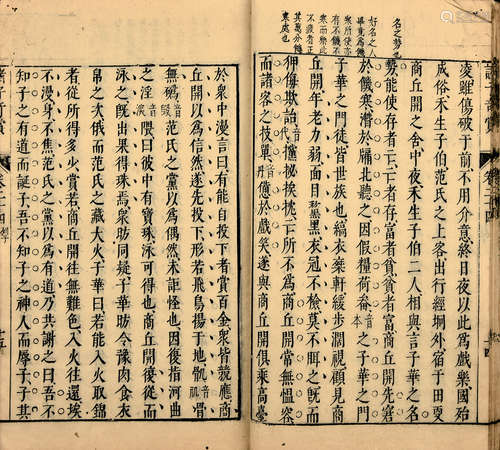 名之勢力
好名之人
畢竟爲饑
寒所使亦
有不饑不
寒而樂此
不疲者正
其萬分饑
寒處也
凌雖傷破于前不用介意終日夜以此爲戲樂國殆
成俗禾生子伯范氏之上客出行經坰外宿于田叟
商丘開之舍中夜禾生子伯二人相與言子華之名
勢能使存者亡亡者存富者貧貧者富商丘開先窘
於饑寒潛於牖北聽之因假糧荷畚音本之子華之門
子華之門徒皆世族也縞衣乗軒緩步濶視顧見商
丘開年老力弱面目黧黑衣冠不檢莫不眲之既而
狎侮欺詒音代攩㧙挨抌亡所不爲商丘開常無慍容
而諸客之技單音丹憊於戲笑遂與商丘開俱乘高臺
於衆中漫言曰有能自投下者賞百金衆皆競應商
丘開以爲信然遂先投下形若飛鳥揚于地骩音肌骨
無䃣音毁范氏之黨以爲偶然未詎怪也因復指河曲
之淫音深隈曰彼中有寶珠泳可得也商丘開復從而
泳之既出果得珠焉衆昉同疑子華昉令豫肉食衣
帛之次俄而范氏之藏大火子華曰若能入火取錦
者從所得多少賞若商丘開往無難色入火往還埃
不漫身不焦范氏之黨以爲有道乃共謝之曰吾不
知子之有道而誕子吾不知子之神人而辱子子其
諸子奇賞
卷二十四